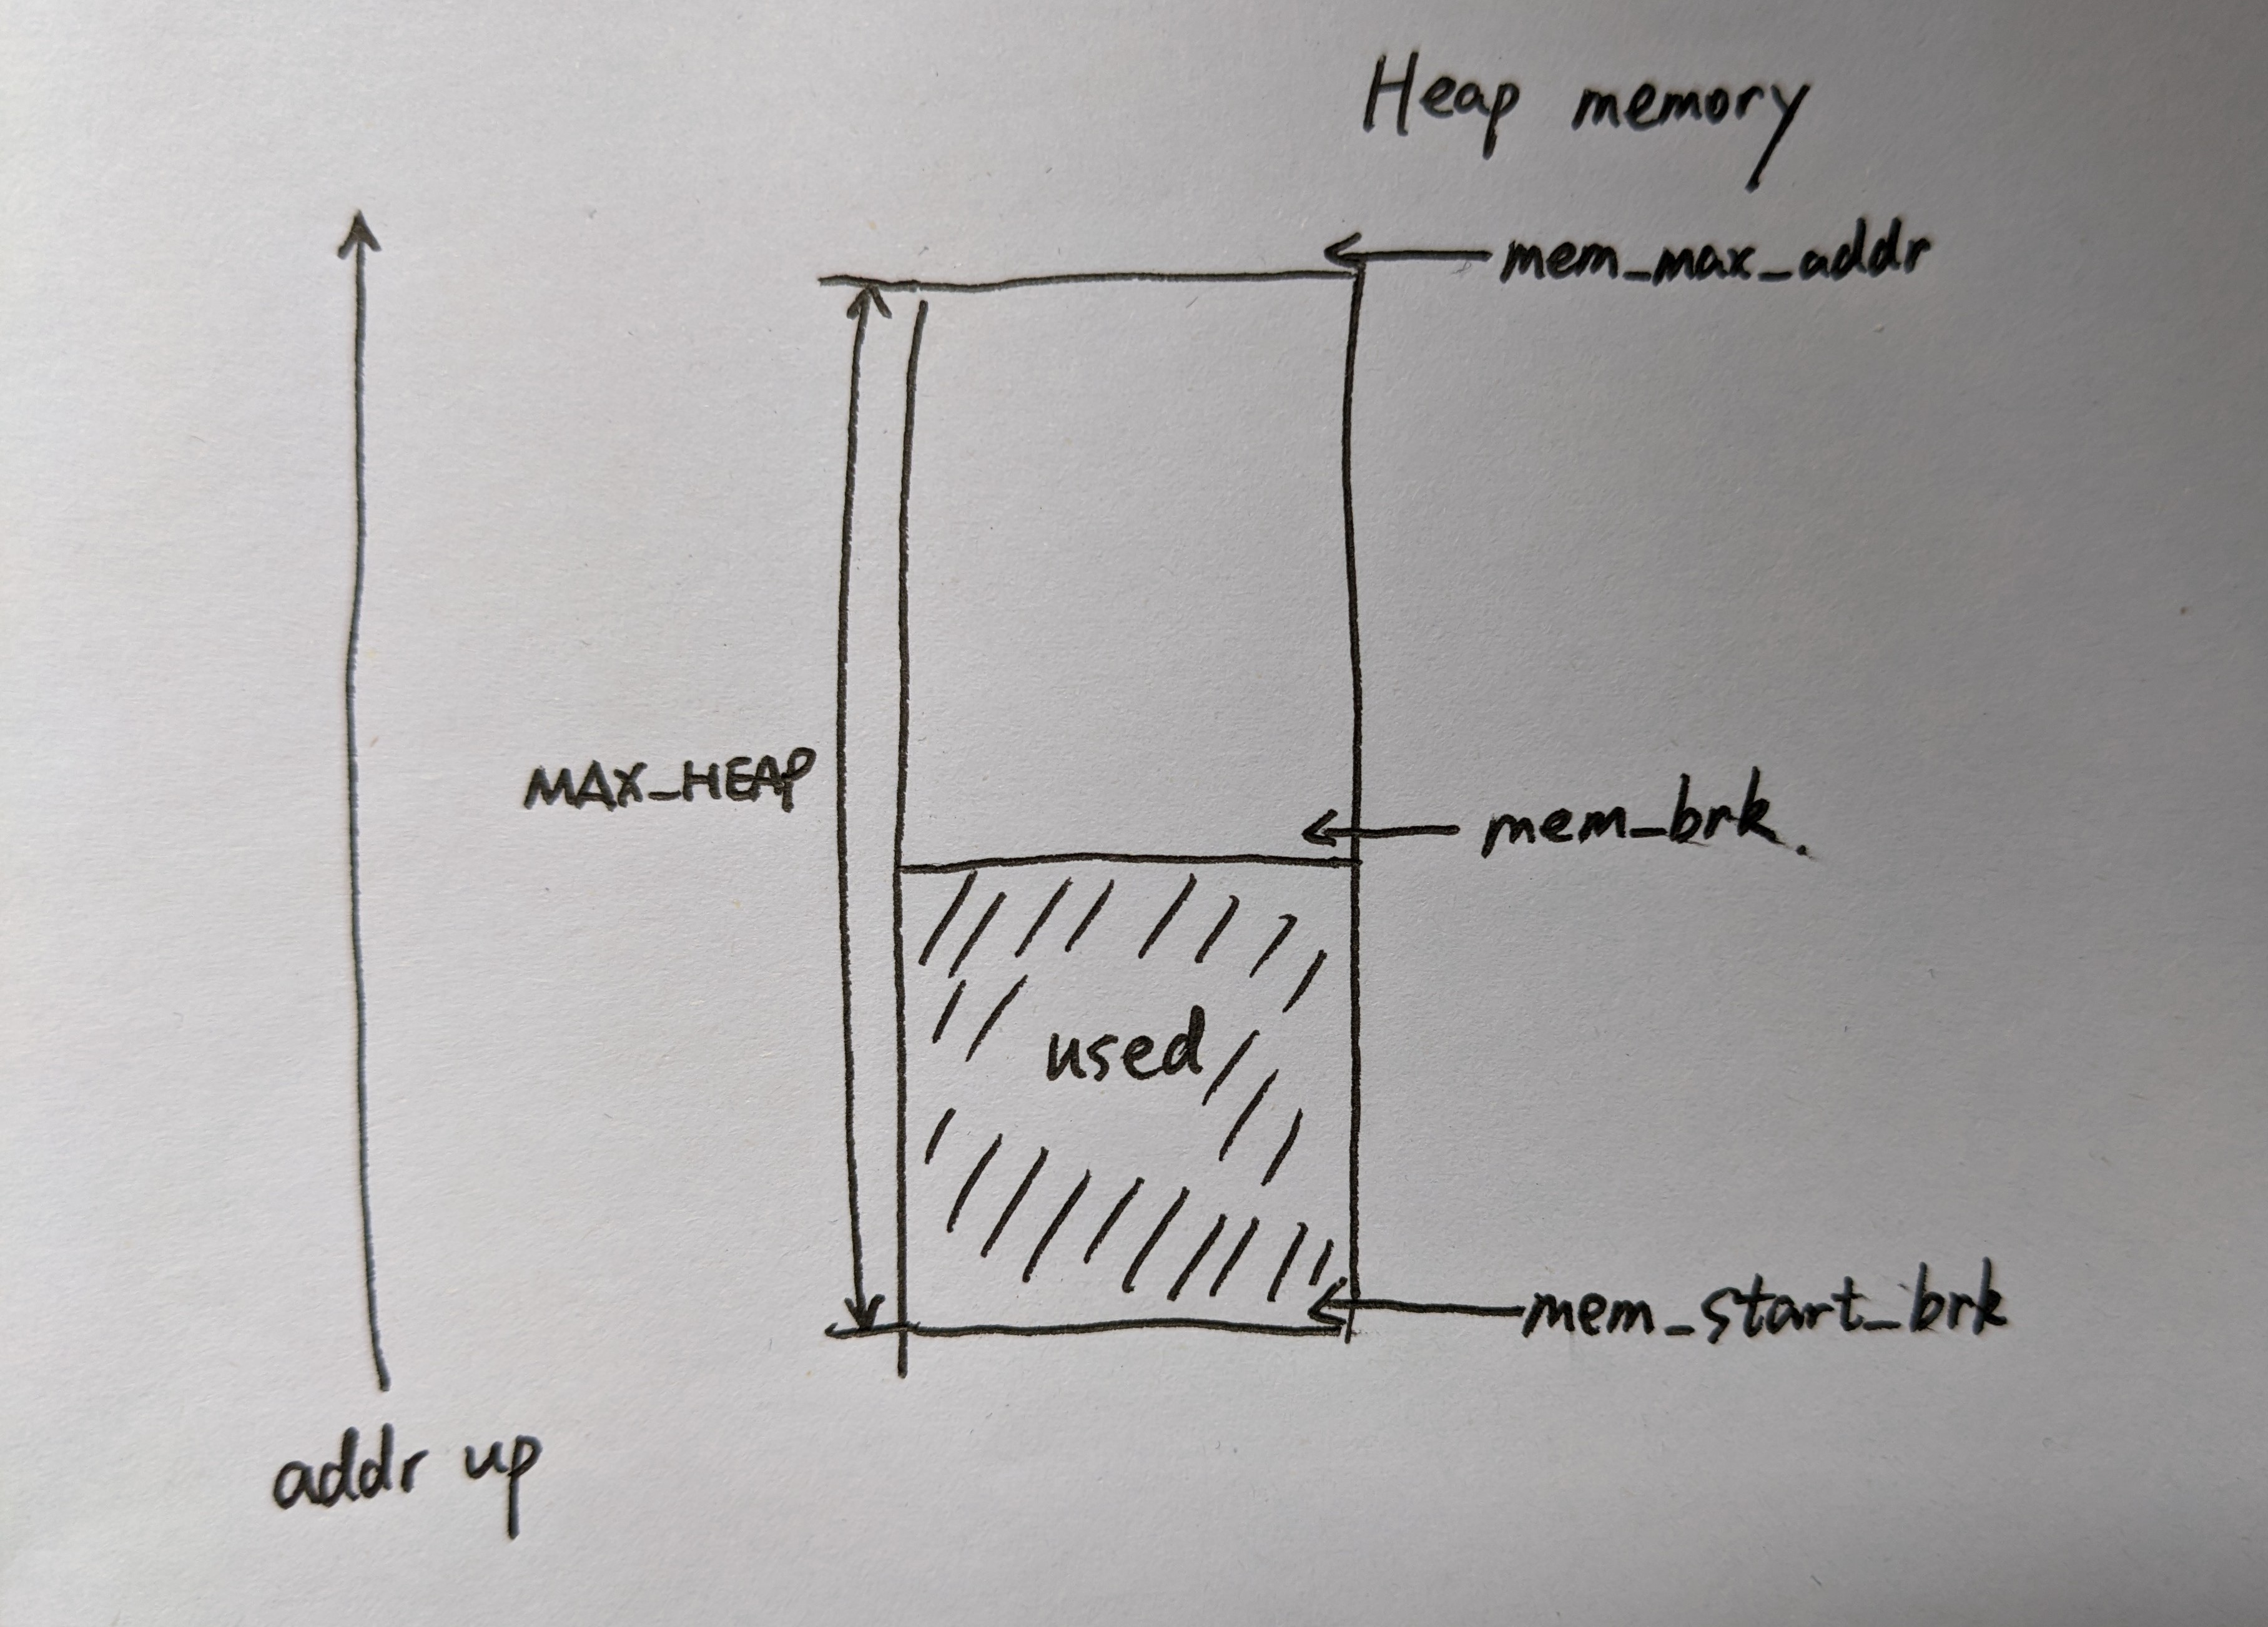 Heap memory
mem_max_addr
MAX_HEAP
mem_brk.
used
mem_start_brk
addr up